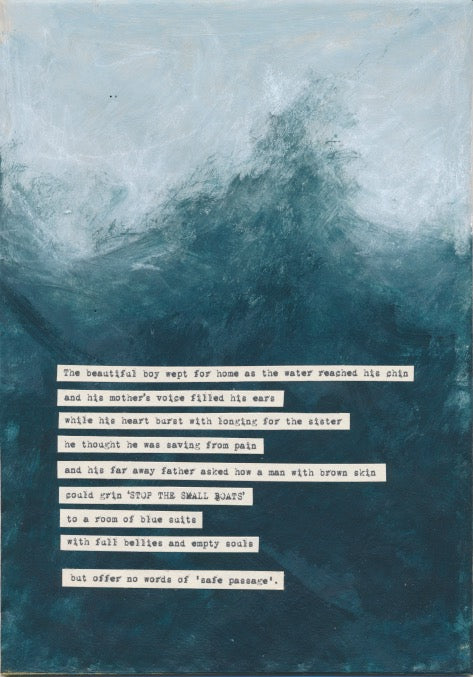 The beautiful boy wept for home as the water reached his chin
and his mother's voice filled his ears
while his heart burst with longing for the sister
he thought he was saving from pain
and his far away father asked how a man with brown skin
could grin 'STOP THE SMALL BOATS'
to a room of blue suits
with full bellies and empty souls
but offer no words of 'safe passage'.